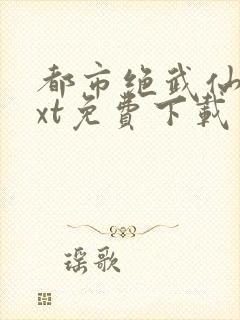 都市绝武仙
xt免費下載
瑶歌